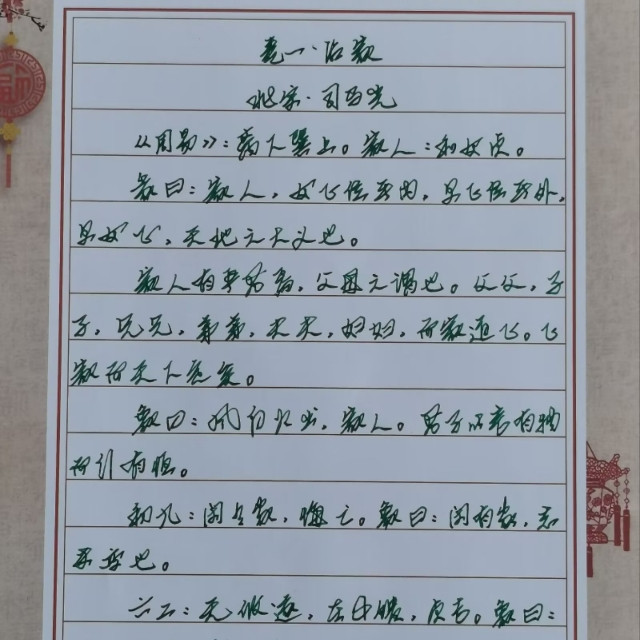 卷一·治家
北宋·司马光
《周易》：离下巽上。家人：利女贞。
彖曰：家人，女正位乎内，男正位乎外，
男女正，天地之大义也。
家人有严君焉，父母之谓也。父父，子
子，兄兄，弟弟，夫夫，妇妇，而家道正。正
家而天下定矣。
象曰：风自火出，家人。君子以言有物
而行有恒。
初九：闲有家，悔亡。象曰：闲有家，志
未变也。
六二：无攸遂，在中馈，贞吉。象曰：